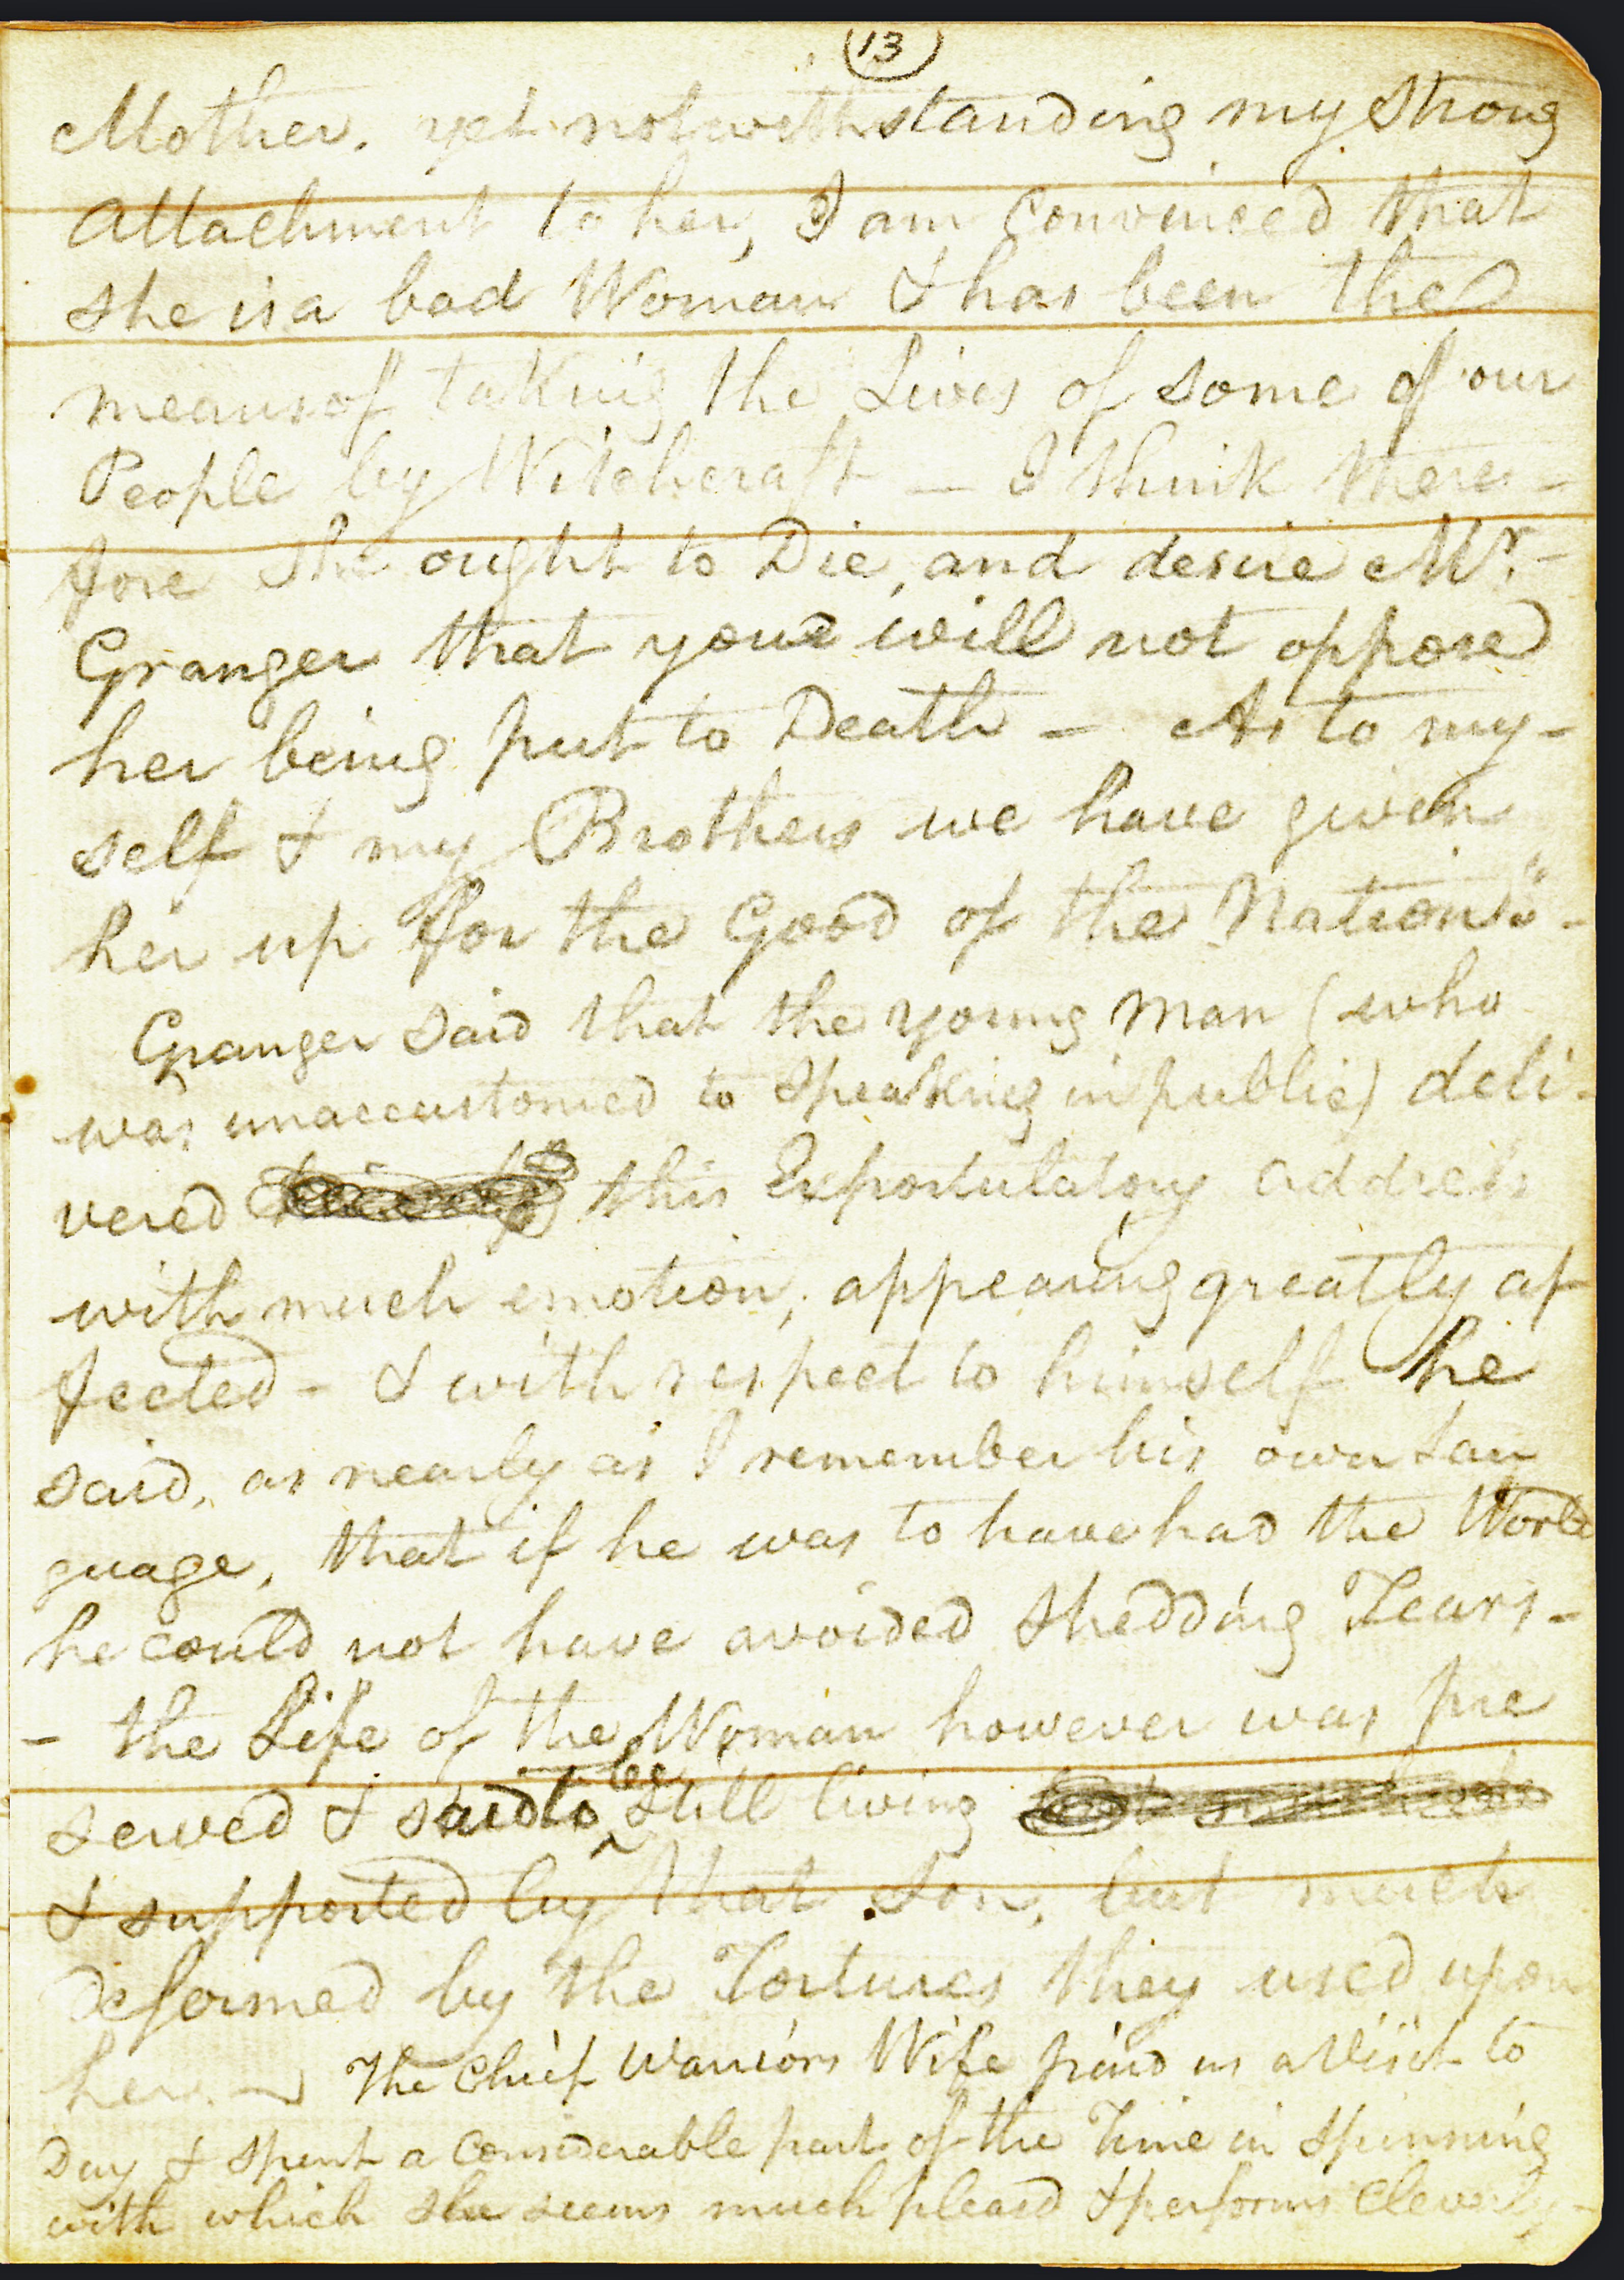 13
Mother. yet notwithstanding my strong
Attachment to her, I am Convinced that
she is a bad Woman & has been the
means of taking the Lives of some of our
People by Witchcraft — I think there-
fore She ought to Die, and desire Mr.-
Granger that you will not oppose
her being put to Death - As to my-
self & my Brothers we have given
her up for the Good of the Nation". -
Granger said that the young Man (who
was unaccustomed to Speaking in public) deli-
vered this Expostulatory address
with much emotion, appearing greatly af
fected - & with respect to himself he
said, as nearly as I remember his own Lan
guage, that if he was to have had the World
he could not have avoided shedding Tears -
- the Life of the Woman however was pre
served & said to be still living
& supported by that Son, but much
deformed by the Tortures they used upon
her. — The Chief Warriors Wife paid us a Visit to
Day & spent a Considerable part of the Time in Spinning
with which she seems much pleasd & performs Cleverly -